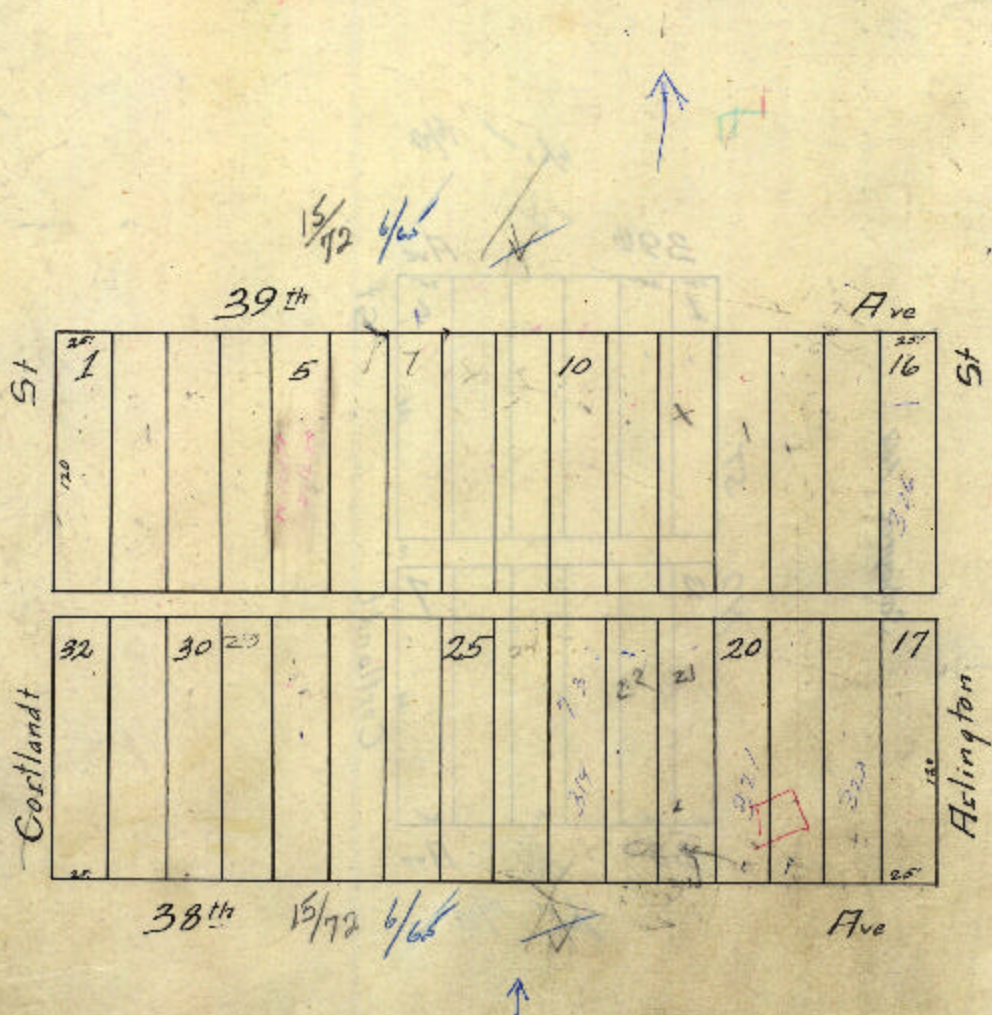 15/72 6/65
39th Ave
St
25' 25'
1 5 7 10 16
St
120
306
32 30 29 25 24 20 17
22 21
73
314
321
322
Cortlandt
Arlington
120
25' 25'
38th 15/72 6/65 Ave